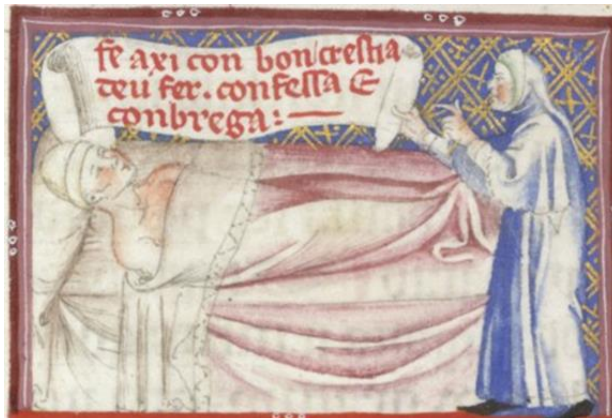 fe axi con bon crestia
deu fer. confessa &
conbrega:—